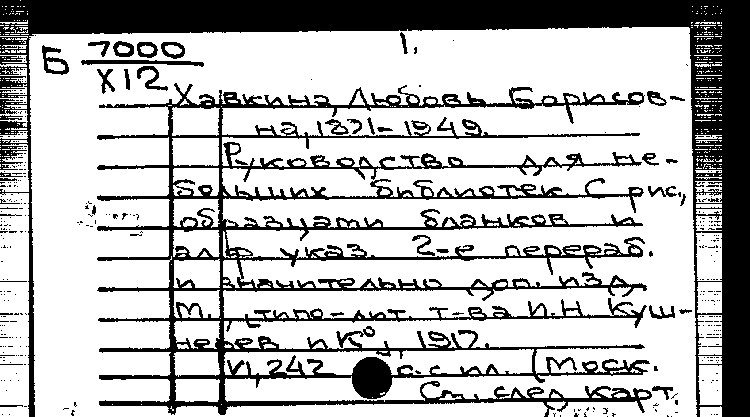 Б 7000
X12
1.
Хавкина, Любовь Борисов-
на, 1871-1949.
Руководство для не-
больших библиотек. С рис.,
образцами бланков и
алф. указ. 2-е перераб.
и значительно доп. изд.
М., типо-лит. т-ва И.Н. Куш-
нерев и К°, 1917.
VI, 242 с. с ил. (Моск.
См. след. карт.